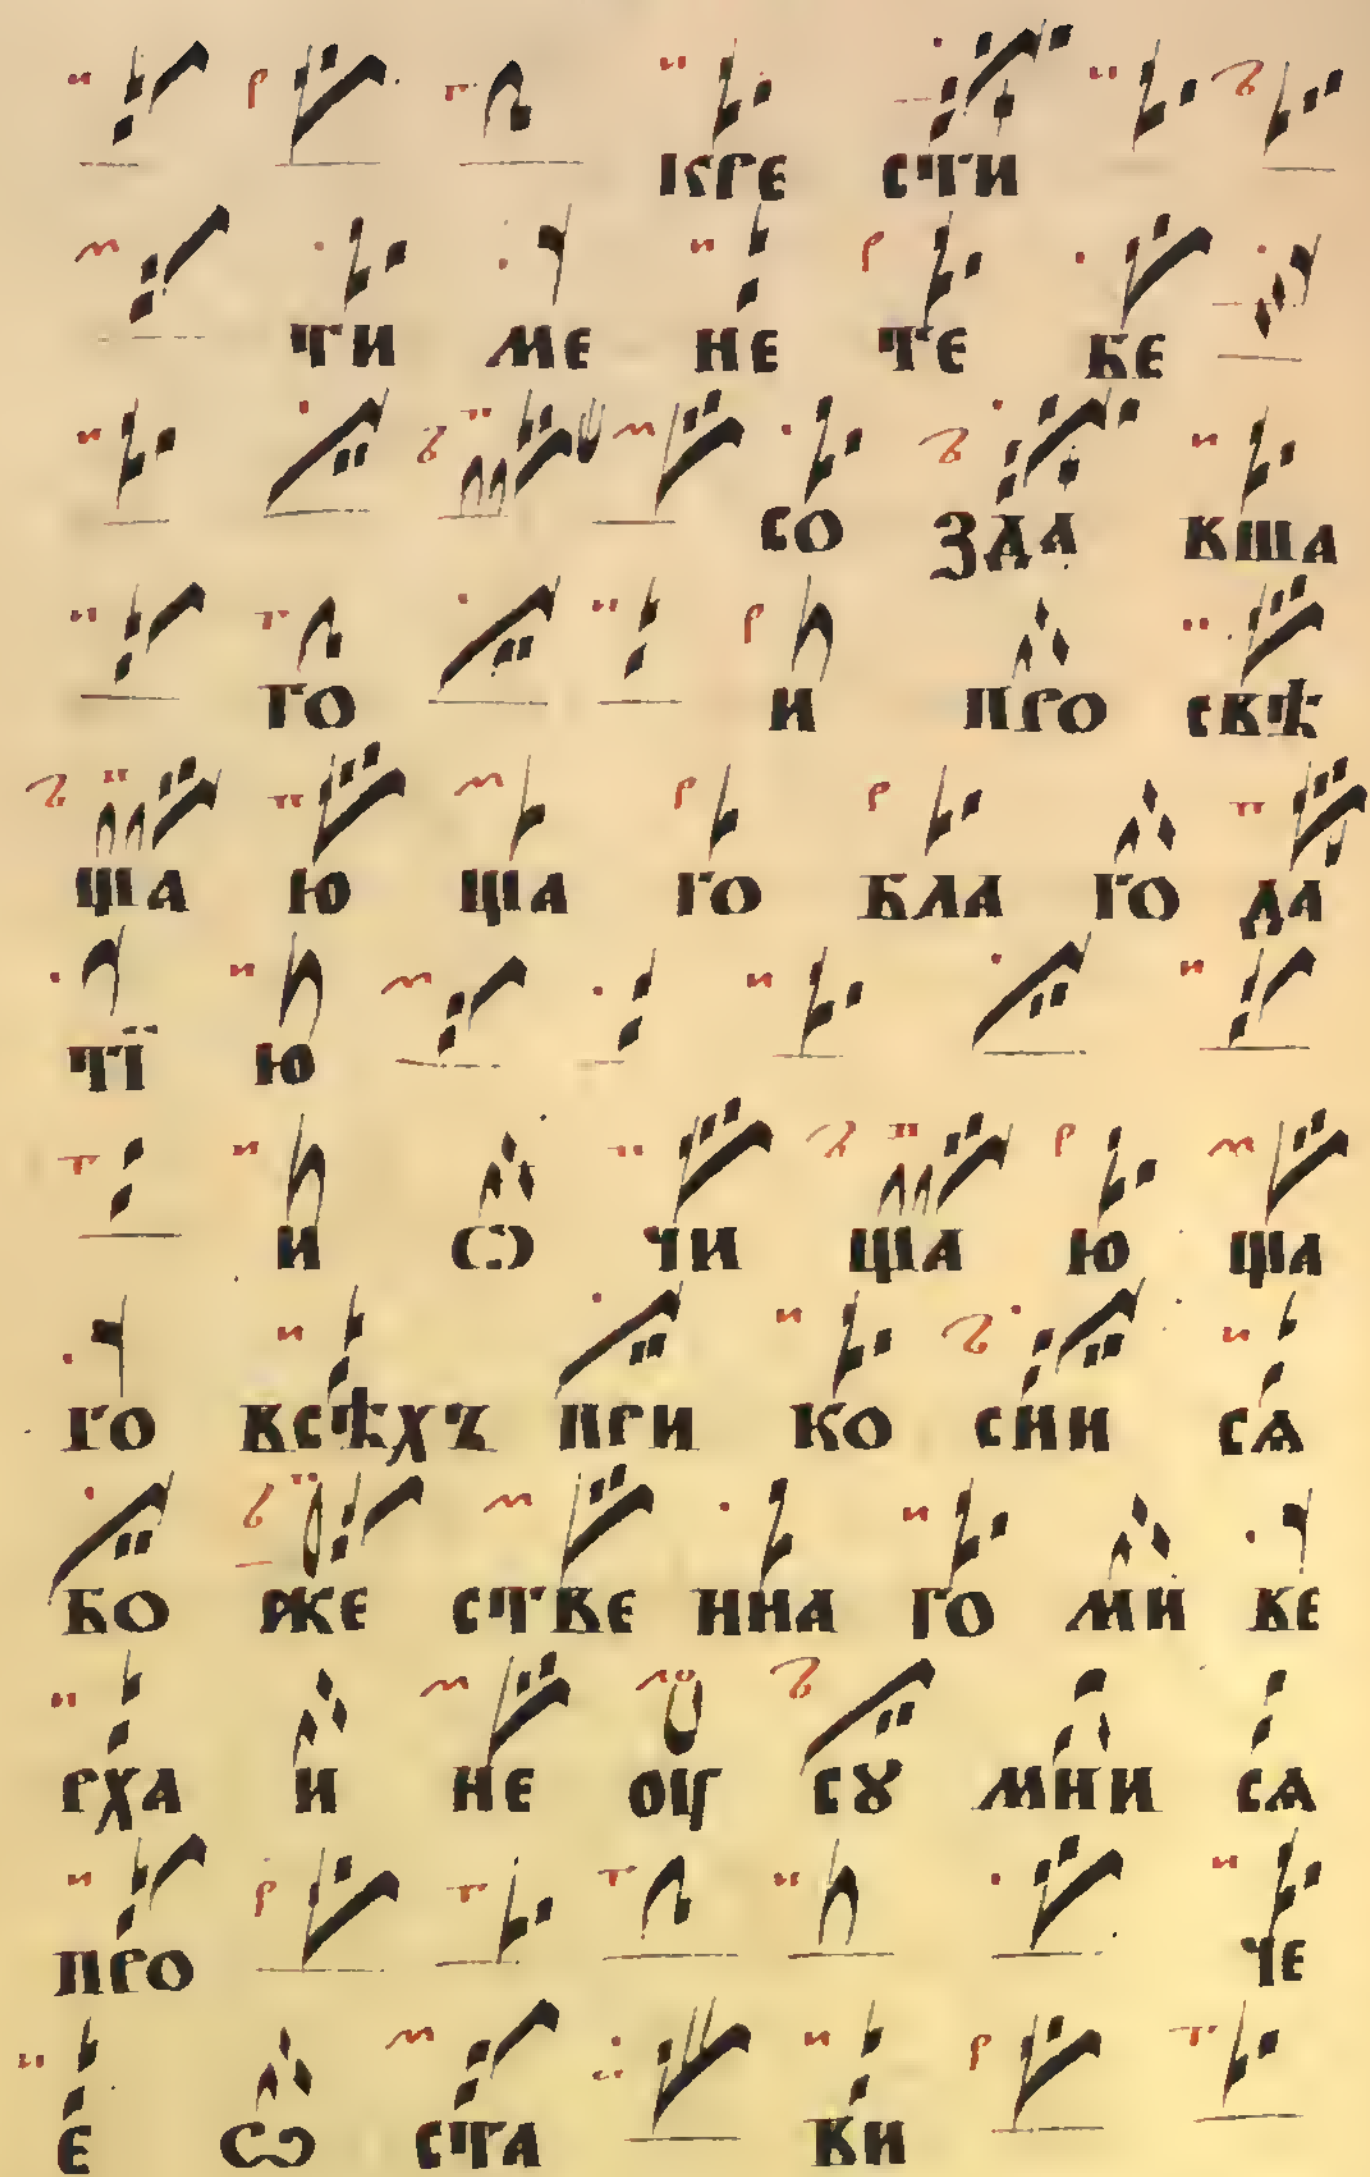 КРЕ СТИ
ТИ МЕ НЕ ТЕ БЕ
СО ЗДА ВША
ГО И ПРО СВѢ
ЩА Ю ЩА ГО БЛА ГО ДА
ТЇ Ю
И Ѡ ЧИ ЩА Ю ЩА
ГО ВСѢХЪ ПРИ КО СНИ СѦ
БО ЖЕ СТВЕ ННА ГО МИ ВЕ
РХА И НЕ ОУ СꙊ МНИ СѦ
ПРО ЧЕ
Е Ѡ СТА ВИ